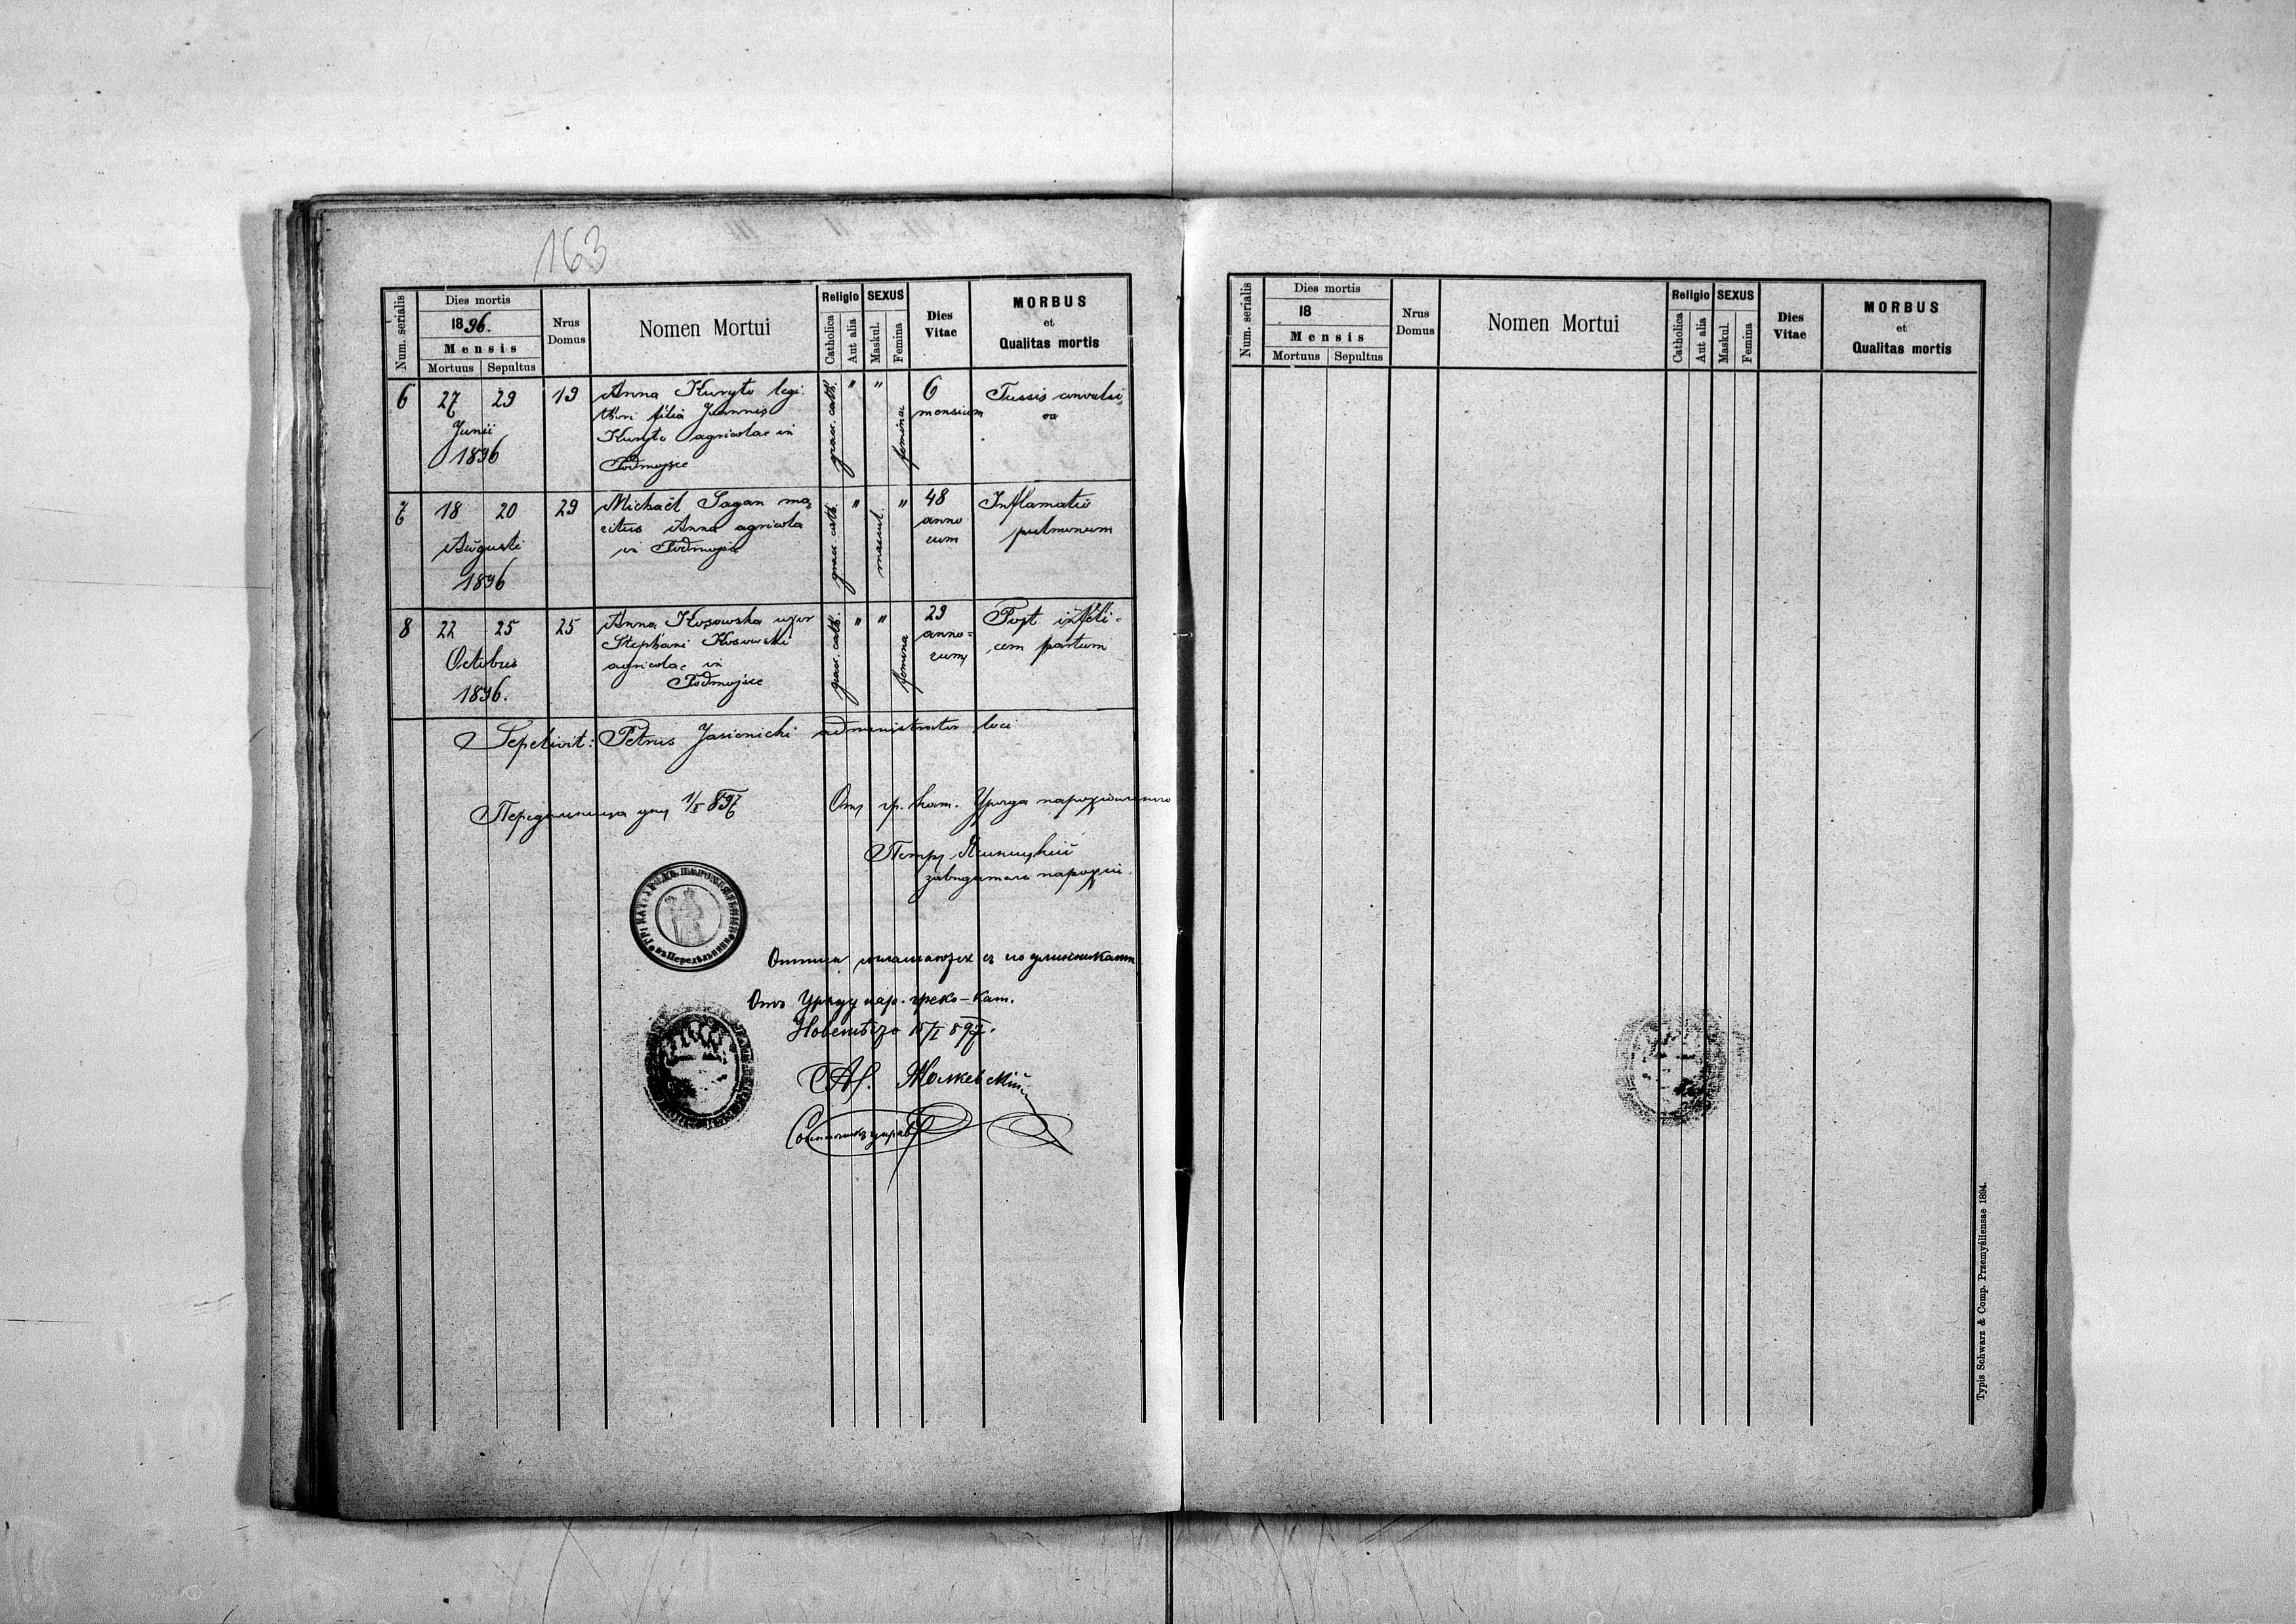 163
Num. serialis
Dies mortis
1896.
Mensis
Mortuus
Sepultus
Nrus Domus
Nomen Mortui
Religio
Catholica
Aut alia
SEXUS
Maskul.
Femina
Dies Vitae
MORBUS
et
Qualitas mortis
6
27
29
Junii
1896
19
Anna Kuryło legi.
thori filia Joannis
Kuryło agricolae in
Podmojsce
graec. cath.
"
"
femina
6
mensium
Tussis convulsi
va
7
18
20
Augusti
1896
29
Michaël Sagan ma
ritus Anna agricola
in Podmojsce
graec. cath.
"
mascul.
"
48
anno
rum
Inflamatio
pulmonum
8
22
25
Octobris
1896.
25
Anna Kosowska uxor
Stephani Kosowski
agricolae in
Podmojsce
graec. cath.
"
"
femina
29
anno=
rum
Post infeli=
cem partum
Sepelivit: Petrus Jasienicki administrator loci
1/I 897
Отъ гр. кат. Уряда
Петръ
завѣдатель парохіи.
ПАРОХІАЛЬНЫЙ
съ подлинникомъ
Отъ Уряду пар. греко-кат.
15/I 897.
Num. serialis
Dies mortis
18
Mensis
Mortuus
Sepultus
Nrus Domus
Nomen Mortui
Religio
Catholica
Aut alia
SEXUS
Maskul.
Femina
Dies Vitae
MORBUS
et
Qualitas mortis
Typis Schwarz & Comp. Przemyśliensae 1894.